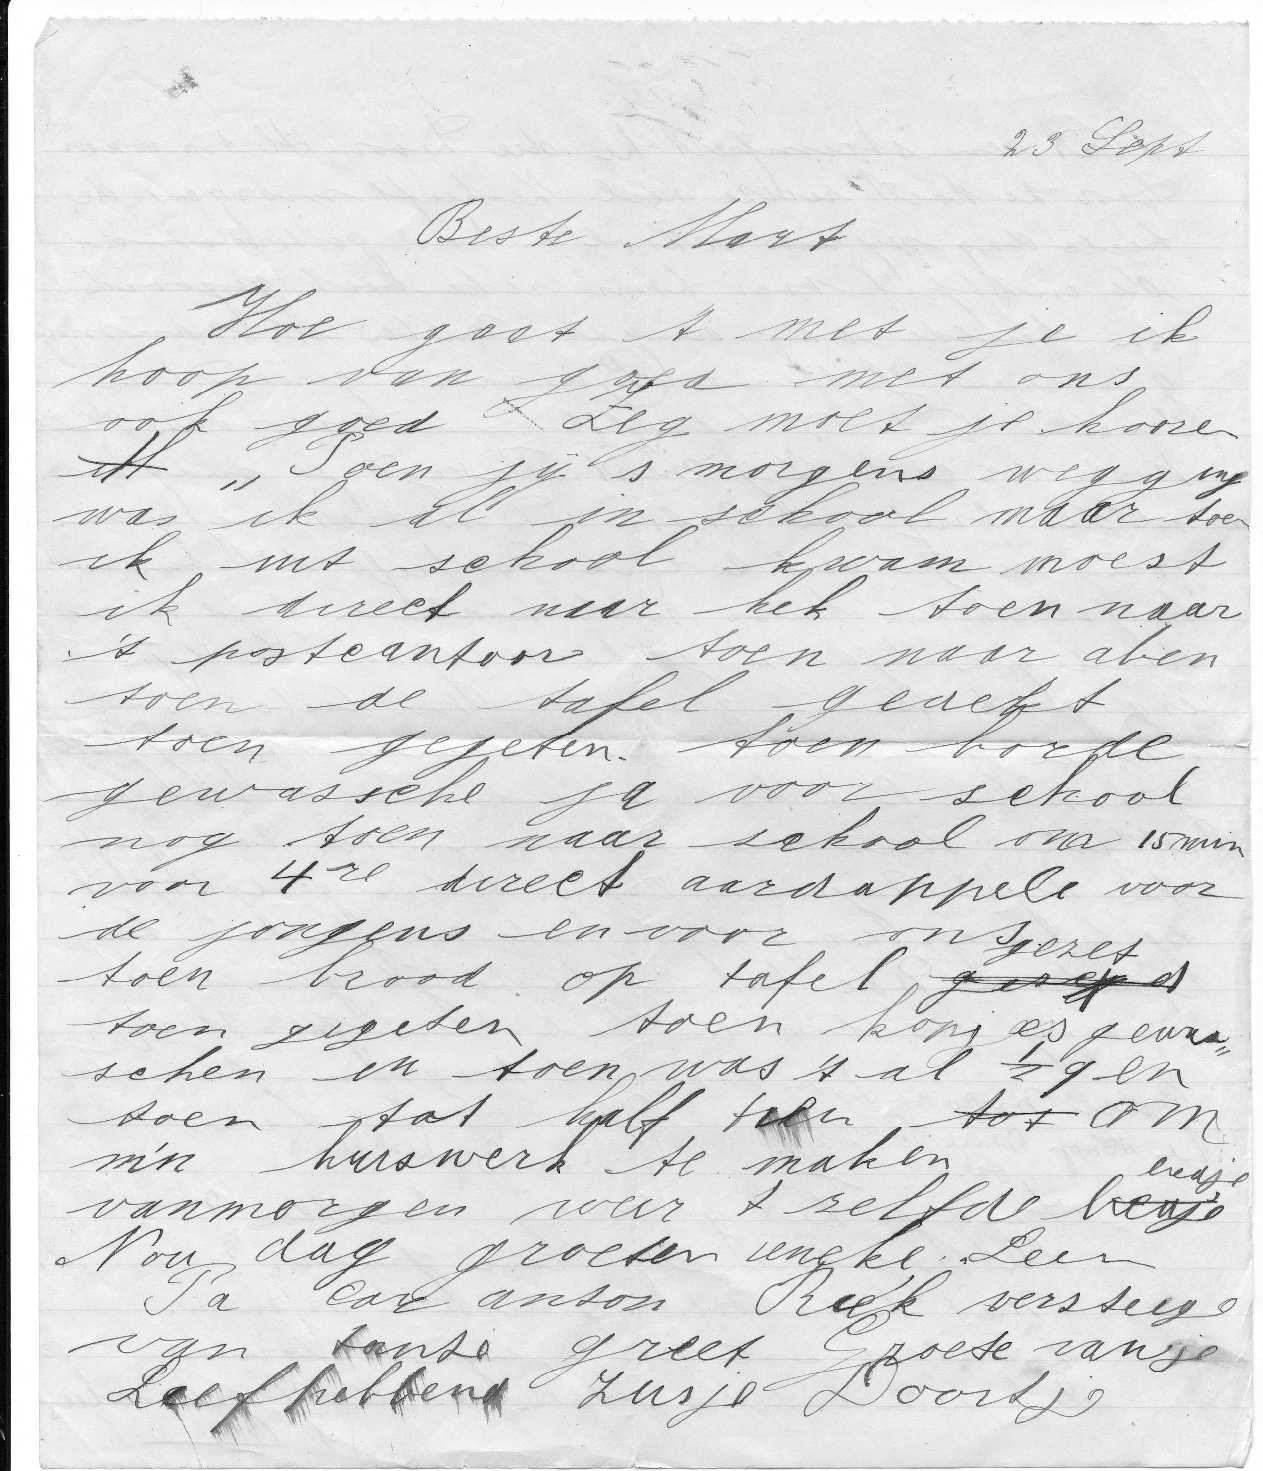 23 Sept
Beste Mart
Hoe gaat 't met je ik
hoop van goed met ons
ook goed Zeg moet je hoore
„ Toen jij s morgens wegging
was ik al in school maar toen
ik uit school kwam moest
ik direct naar hek toen naar
't postcantoor toen naar aben
toen de tafel gedekt
toen gegeten. toen borde
gewassche ja voor school
nog toen naar school om 15 min
voor 4re direct aardappele voor
de jongens en voor ons
toen brood op tafel gezet
toen gegeten toen kopjes gewas„
schen en toen was 't al ½ 9 en
toen tot half tien tot om
m'n huiswerk te maken
vanmorgen weer t zelfde
Nou dag groeten Leen
Pa Cor anton Riek versteege
van tante greet Groete van je
Liefhebbend zusje Doortje